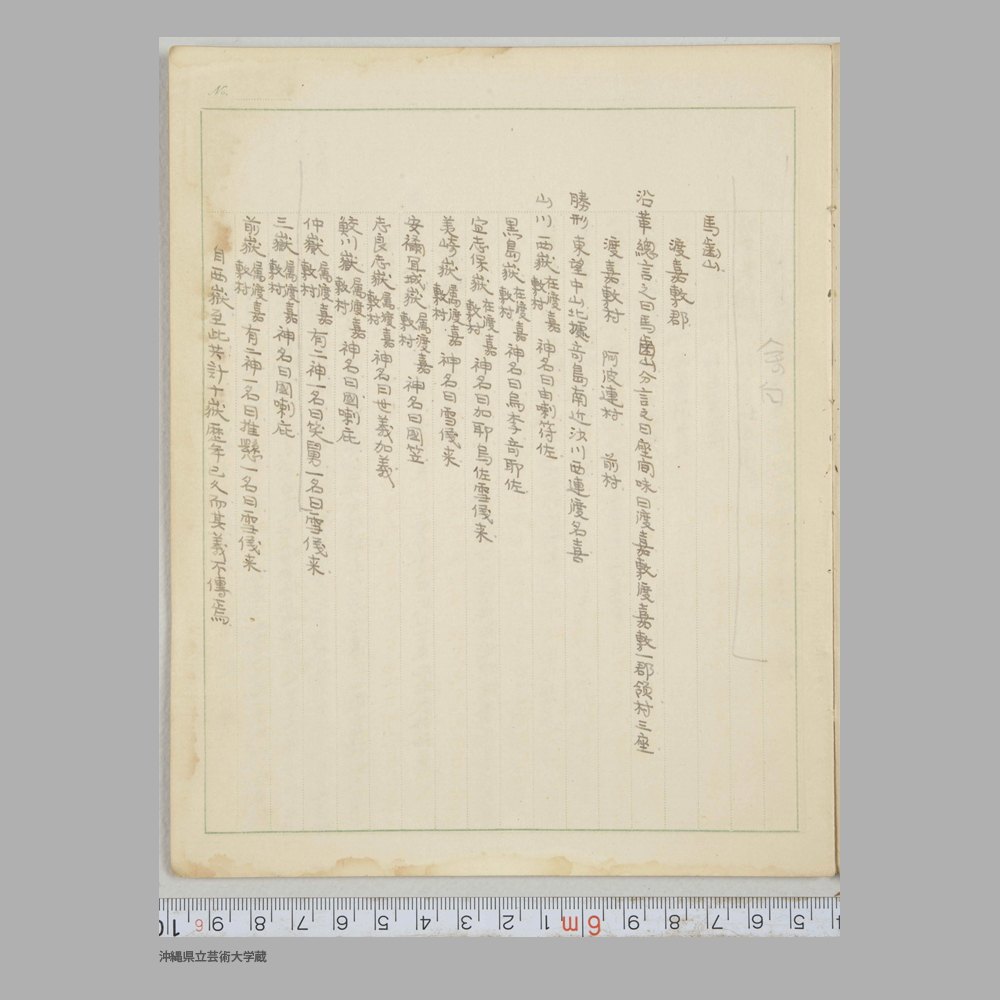 馬齒山
渡嘉敷郡
沿革總言之曰馬齒山分言之曰座間味曰渡嘉敷渡嘉敷一郡領村三座
渡嘉敷村 阿波連村 前村
勝形 東望中山北據奇島南近汝川西連渡名喜
山川 西嶽在渡嘉敷村 神名曰由喇符佐
黒島嶽在渡嘉敷村 神名曰烏李奇耶佐
宜志保嶽在渡嘉敷村 神名曰加耶烏佐雪儀来
美崎嶽属渡嘉敷村 神名曰雪儀来
安禰宜城嶽属渡嘉敷村 神名曰國笠
志良志嶽属渡嘉敷村 神名曰世義加義
鮫川嶽属渡嘉敷村 神名曰國喇庇
仲嶽属渡嘉敷村 有二神一名曰笑舅一名曰雪儀来
三嶽属渡嘉敷村 神名曰國喇庇
前嶽属渡嘉敷村 有二神一名曰推懸一名曰雪儀来
自西嶽至此共計十嶽歴年已久而其義不傳焉
沖縄県立芸術大学蔵